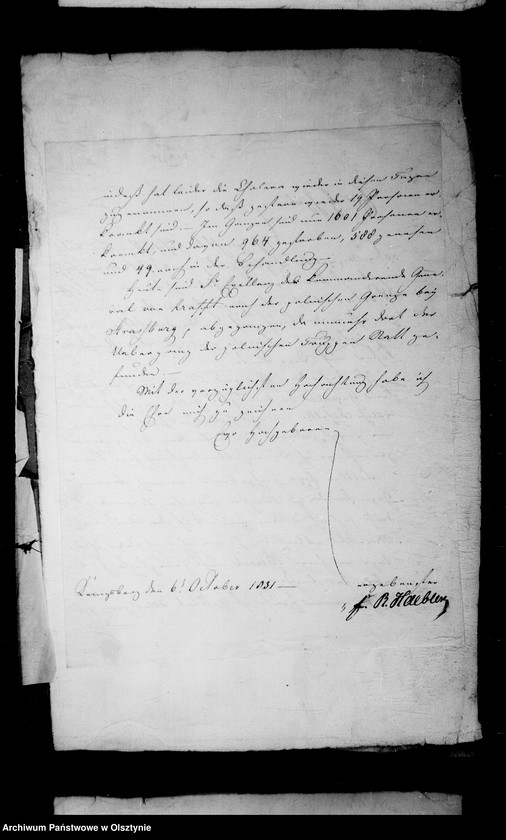 indeß hat leider die Cholera wieder in diesen Tagen
zugenommen, so daß gestern wieder 19 Personen er
krankt sind. — Im Ganzen sind nun 1601 Personen er
krankt, und davon 964 gestorben, 588 genesen
und 49 noch in der Behandlung. —
Heute sind Sr Excellenz der kommandierende Gene,
ral von Krafft nach der polnischen Grenze bei
Strasburg, abgegangen, da nunmehr dort der
Uebergang der polnischen Truppen Statt ge,
funden. —
Mit der vorzüglichsten Hochachtung habe ich
die Ehre mich zu zeichnen
Ew Hochgeboren
Königsberg den 6t October 1831 —
ergebenster
R. Haebler
Archiwum Państwowe w Olsztynie